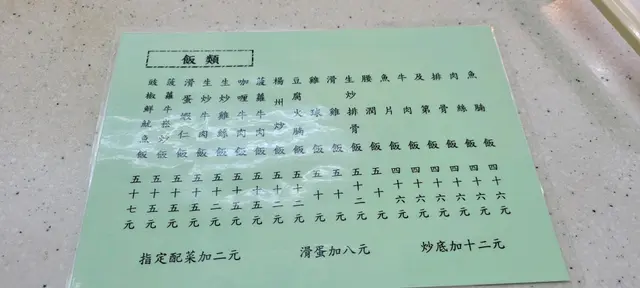 飯類
魚腩飯 四十六元
肉絲飯 四十六元
排骨飯 四十六元
及第飯 四十六元
牛肉飯 四十六元
魚片飯 四十六元
腰潤飯 五十元
生炒排骨飯 五十二元
滑雞飯 五十元
雞球飯 五十元
豆腐火腩飯 五十二元
楊州炒飯 五十二元
菠蘿牛肉飯 五十五元
咖喱牛肉飯 五十五元
生炒雞絲飯 五十二元
生炒牛肉飯 五十五元
滑蛋蝦仁飯 五十五元
菠蘿牛崧炒飯 五十五元
豉椒鮮魷魚飯 五十七元
指定配菜加二元
滑蛋加八元
炒底加十二元